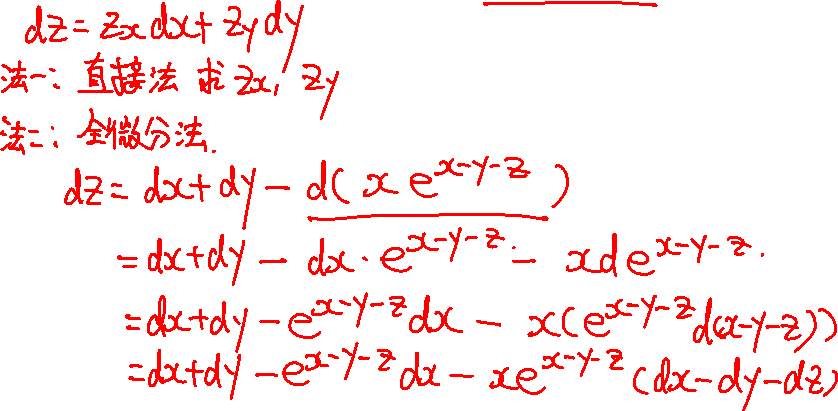 dz = z_x dx + z_y dy
法一: 直接法 求 z_x, z_y
法二: 全微分法.
dz = dx + dy - d(x e^{x-y-z})
= dx + dy - dx · e^{x-y-z} - x d e^{x-y-z}.
= dx + dy - e^{x-y-z} dx - x(e^{x-y-z} d(x-y-z))
= dx + dy - e^{x-y-z} dx - x e^{x-y-z} (dx - dy - dz)